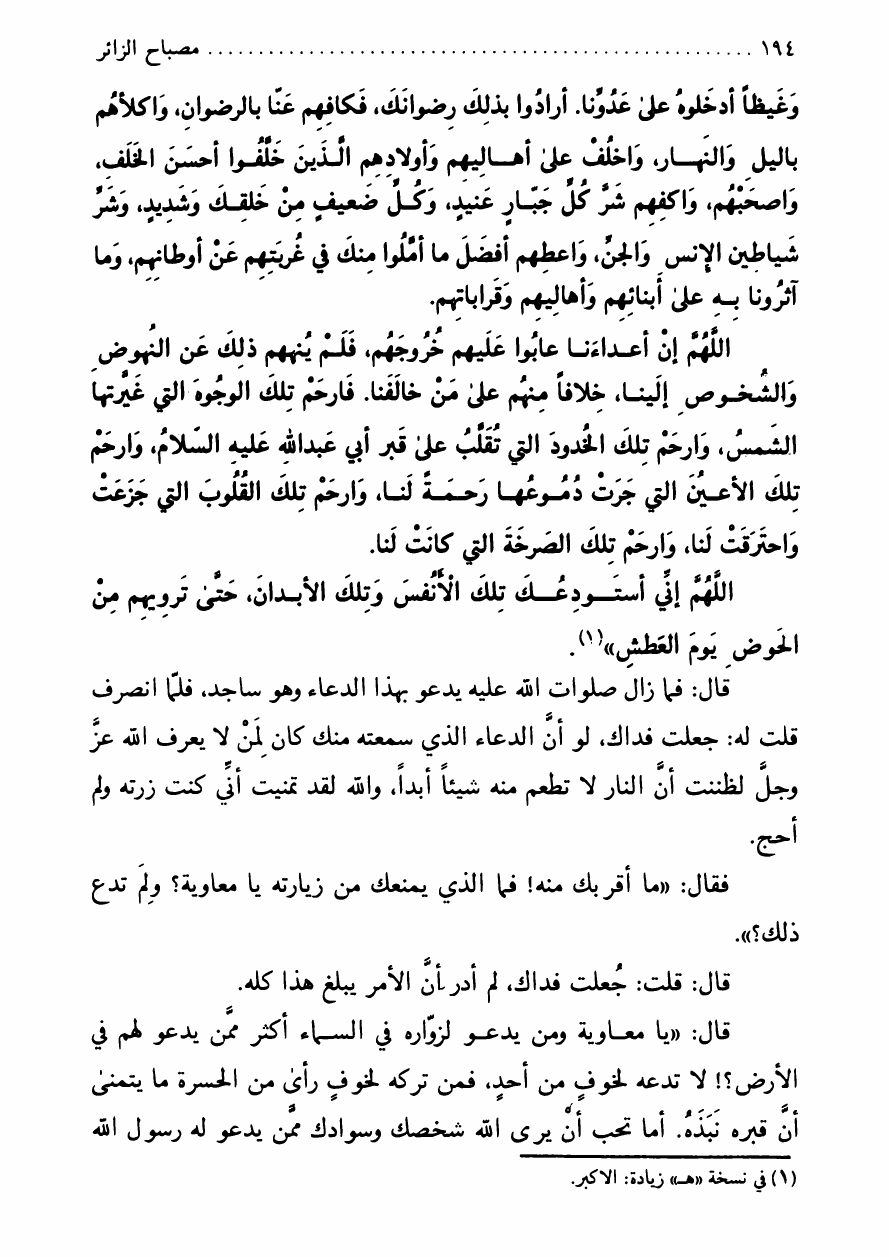 ١٩٤ ........................................................ مصباح الزائر
وَغَيظاً أدخَلوهُ علىٰ عَدُوِّنا. أرادُوا بذلكَ رِضوانَكَ، فَكافِهِم عَنّا بالرضوانِ، وَاكلأهُم
بالليلِ وَالنَهـارِ، وَاخلُفْ علىٰ أهـاليهِم وَأولادِهِم الَّـذينَ خَلَّفُـوا أحسَنَ الخَلَفِ،
وَاصحَبْهُم، وَاكفِهِم شَرَّ كُلِّ جَبّـارٍ عَنيدٍ، وَكُـلِّ ضَعيفٍ مِنْ خَلقِـكَ وَشَديدٍ، وَشَرَّ
شَياطينِ الإنسِ وَالجنِّ، وَاعطِهِم أفضَلَ ما أمَّلُوا منكَ في غُربَتِهِم عَنْ أوطانِهِم، وَما
آثَرُونا بِـهِ علىٰ أبنائِهِم وَأهاليهِم وَقَراباتِهِم.
اللَّهُمَّ إنْ أعـداءَنـا عابُوا عَلَيهِم خُرُوجَهُم، فَلَـمْ يُنهِهِم ذلِكَ عَنِ النُهوضِ
وَالشُخـوصِ إلَينـا، خلافاً مِنهُم علىٰ مَنْ خالَفَنا. فَارحَمْ تِلكَ الوجُوهَ التي غَيَّرتها
الشَمسُ، وَارحَمْ تِلكَ الخُدودَ التي تُقَلَّبُ علىٰ قَبرِ أبي عَبدالله عَليهِ السّلامُ، وَارحَمْ
تِلكَ الأعـيُنَ التي جَرَتْ دُمُـوعُهـا رَحـمَـةً لَنـا، وَارحَمْ تِلكَ القُلُوبَ التي جَزَعَتْ
وَاحتَرَقَتْ لَنا، وَارحَمْ تِلكَ الصَرخَةَ التي كانَتْ لَنا.
اللَّهُمَّ إنِّي أستَـودِعُـكَ تِلكَ الْأَنْفُسَ وَتِلكَ الأبـدانَ، حَتَّىٰ تَرويهِم مِنْ
الحَوضِ يَومَ العَطشِ»(١).
قال: فما زال صلوات الله عليه يدعو بهذا الدعاء وهو ساجد، فلمّا انصرف
قلت له: جعلت فداك، لو أنَّ الدعاء الذي سمعته منك كان لِمَنْ لا يعرف الله عزَّ
وجلَّ لظننت أنَّ النار لا تطعم منه شيئاً أبداً، والله لقد تمنيت أنِّي كنت زرته ولم
أحج.
فقال: «ما أقربك منه! فما الذي يمنعك من زيارته يا معاوية؟ ولِمَ تدع
ذلك؟».
قال: قلت: جُعلت فداك، لم أدر أنَّ الأمر يبلغ هذا كله.
قال: «يا معـاوية ومن يدعـو لزوّاره في السـماء أكثر ممَّن يدعو لهم في
الأرض؟! لا تدعه لخوفٍ من أحدٍ، فمن تركه لخوفٍ رأىٰ من الحسرة ما يتمنىٰ
أنَّ قبره نَبَذَهُ. أما تحب أنْ يرى الله شخصك وسوادك ممَّن يدعو له رسول الله
(١) في نسخة «هـ» زيادة: الاكبر.